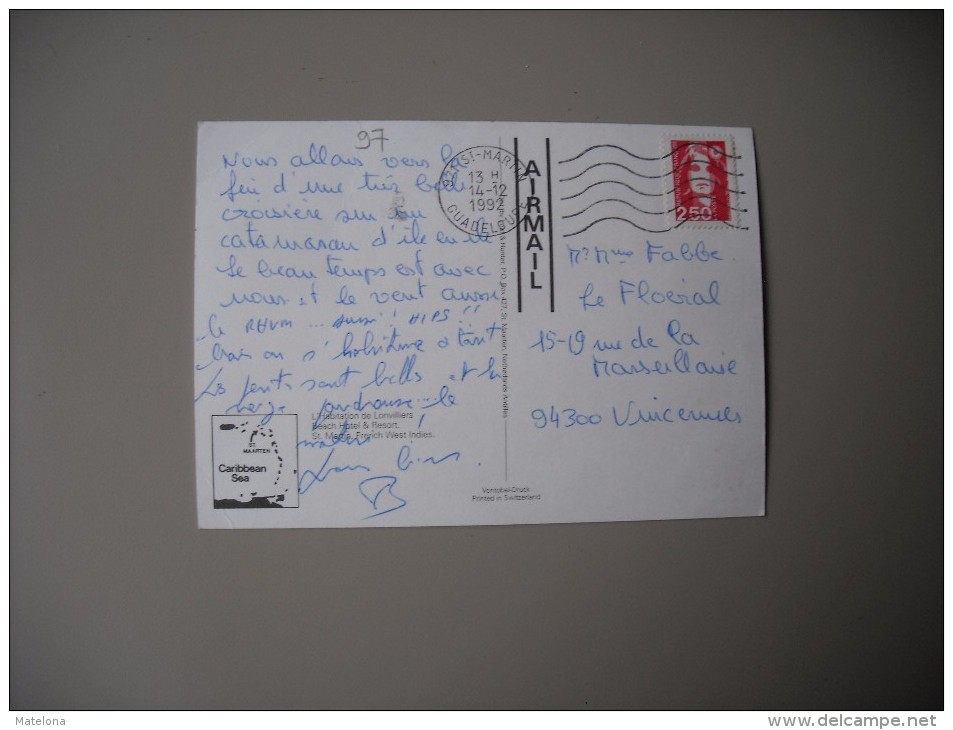 97
Nous allons vers la
fin d'une très belle
croisière sur un
catamaran d'île en île
le beau temps est avec
nous et le vent aussi
le RHUM ... aussi! HIPS!!
mais on s'habitue à tout
Les sont belles et la
le
L'Habitation de Lonvilliers
Beach Hotel & Resort.
St. Martin, French West Indies.
ST. MAARTEN
Caribbean
Sea
B
ST-MARTIN
13 H
14-12
1992
GUADELOUPE
AIRMAIL
2,50
& Hunter, P.O. Box 427, St. Maarten, Netherlands Antilles
Vontobel-Druck
Printed in Switzerland
Mr Mme Fabbe
Le Floréal
15-19 rue de la
Marseillaise
94300 Vincennes
Matelona
www.delcampe.net